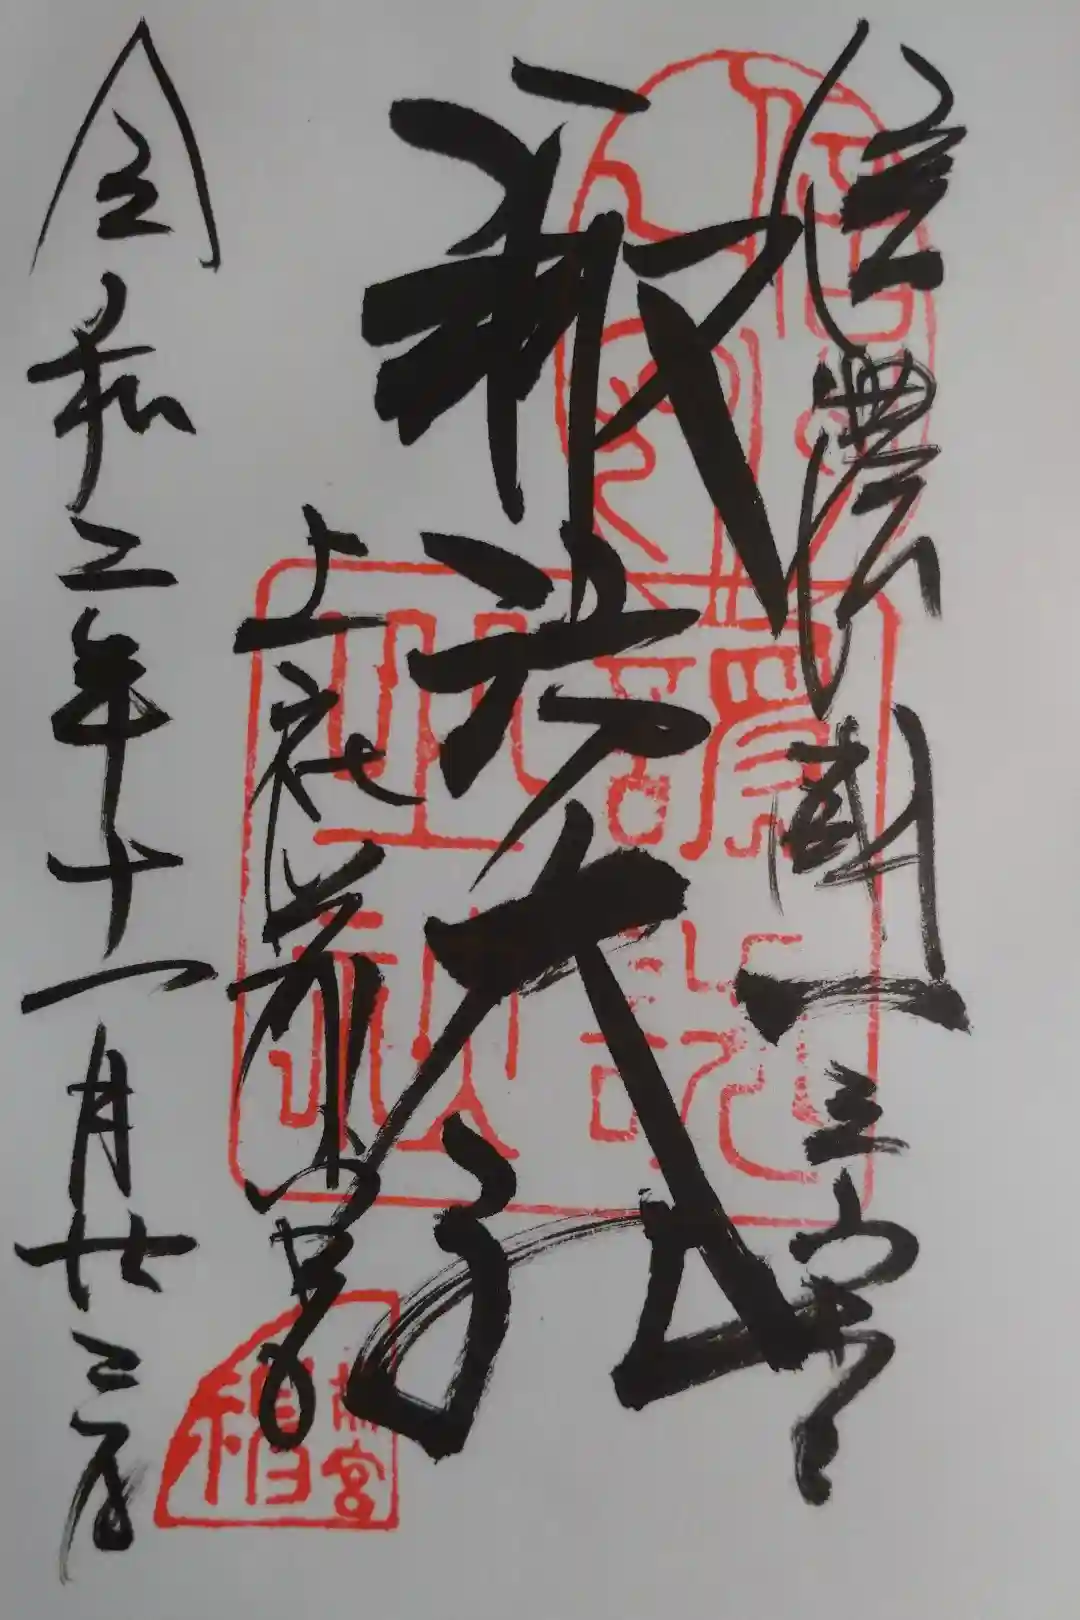 信濃國一之宮
諏訪大社
上社前宮
令和二年十一月廿二日
前宮